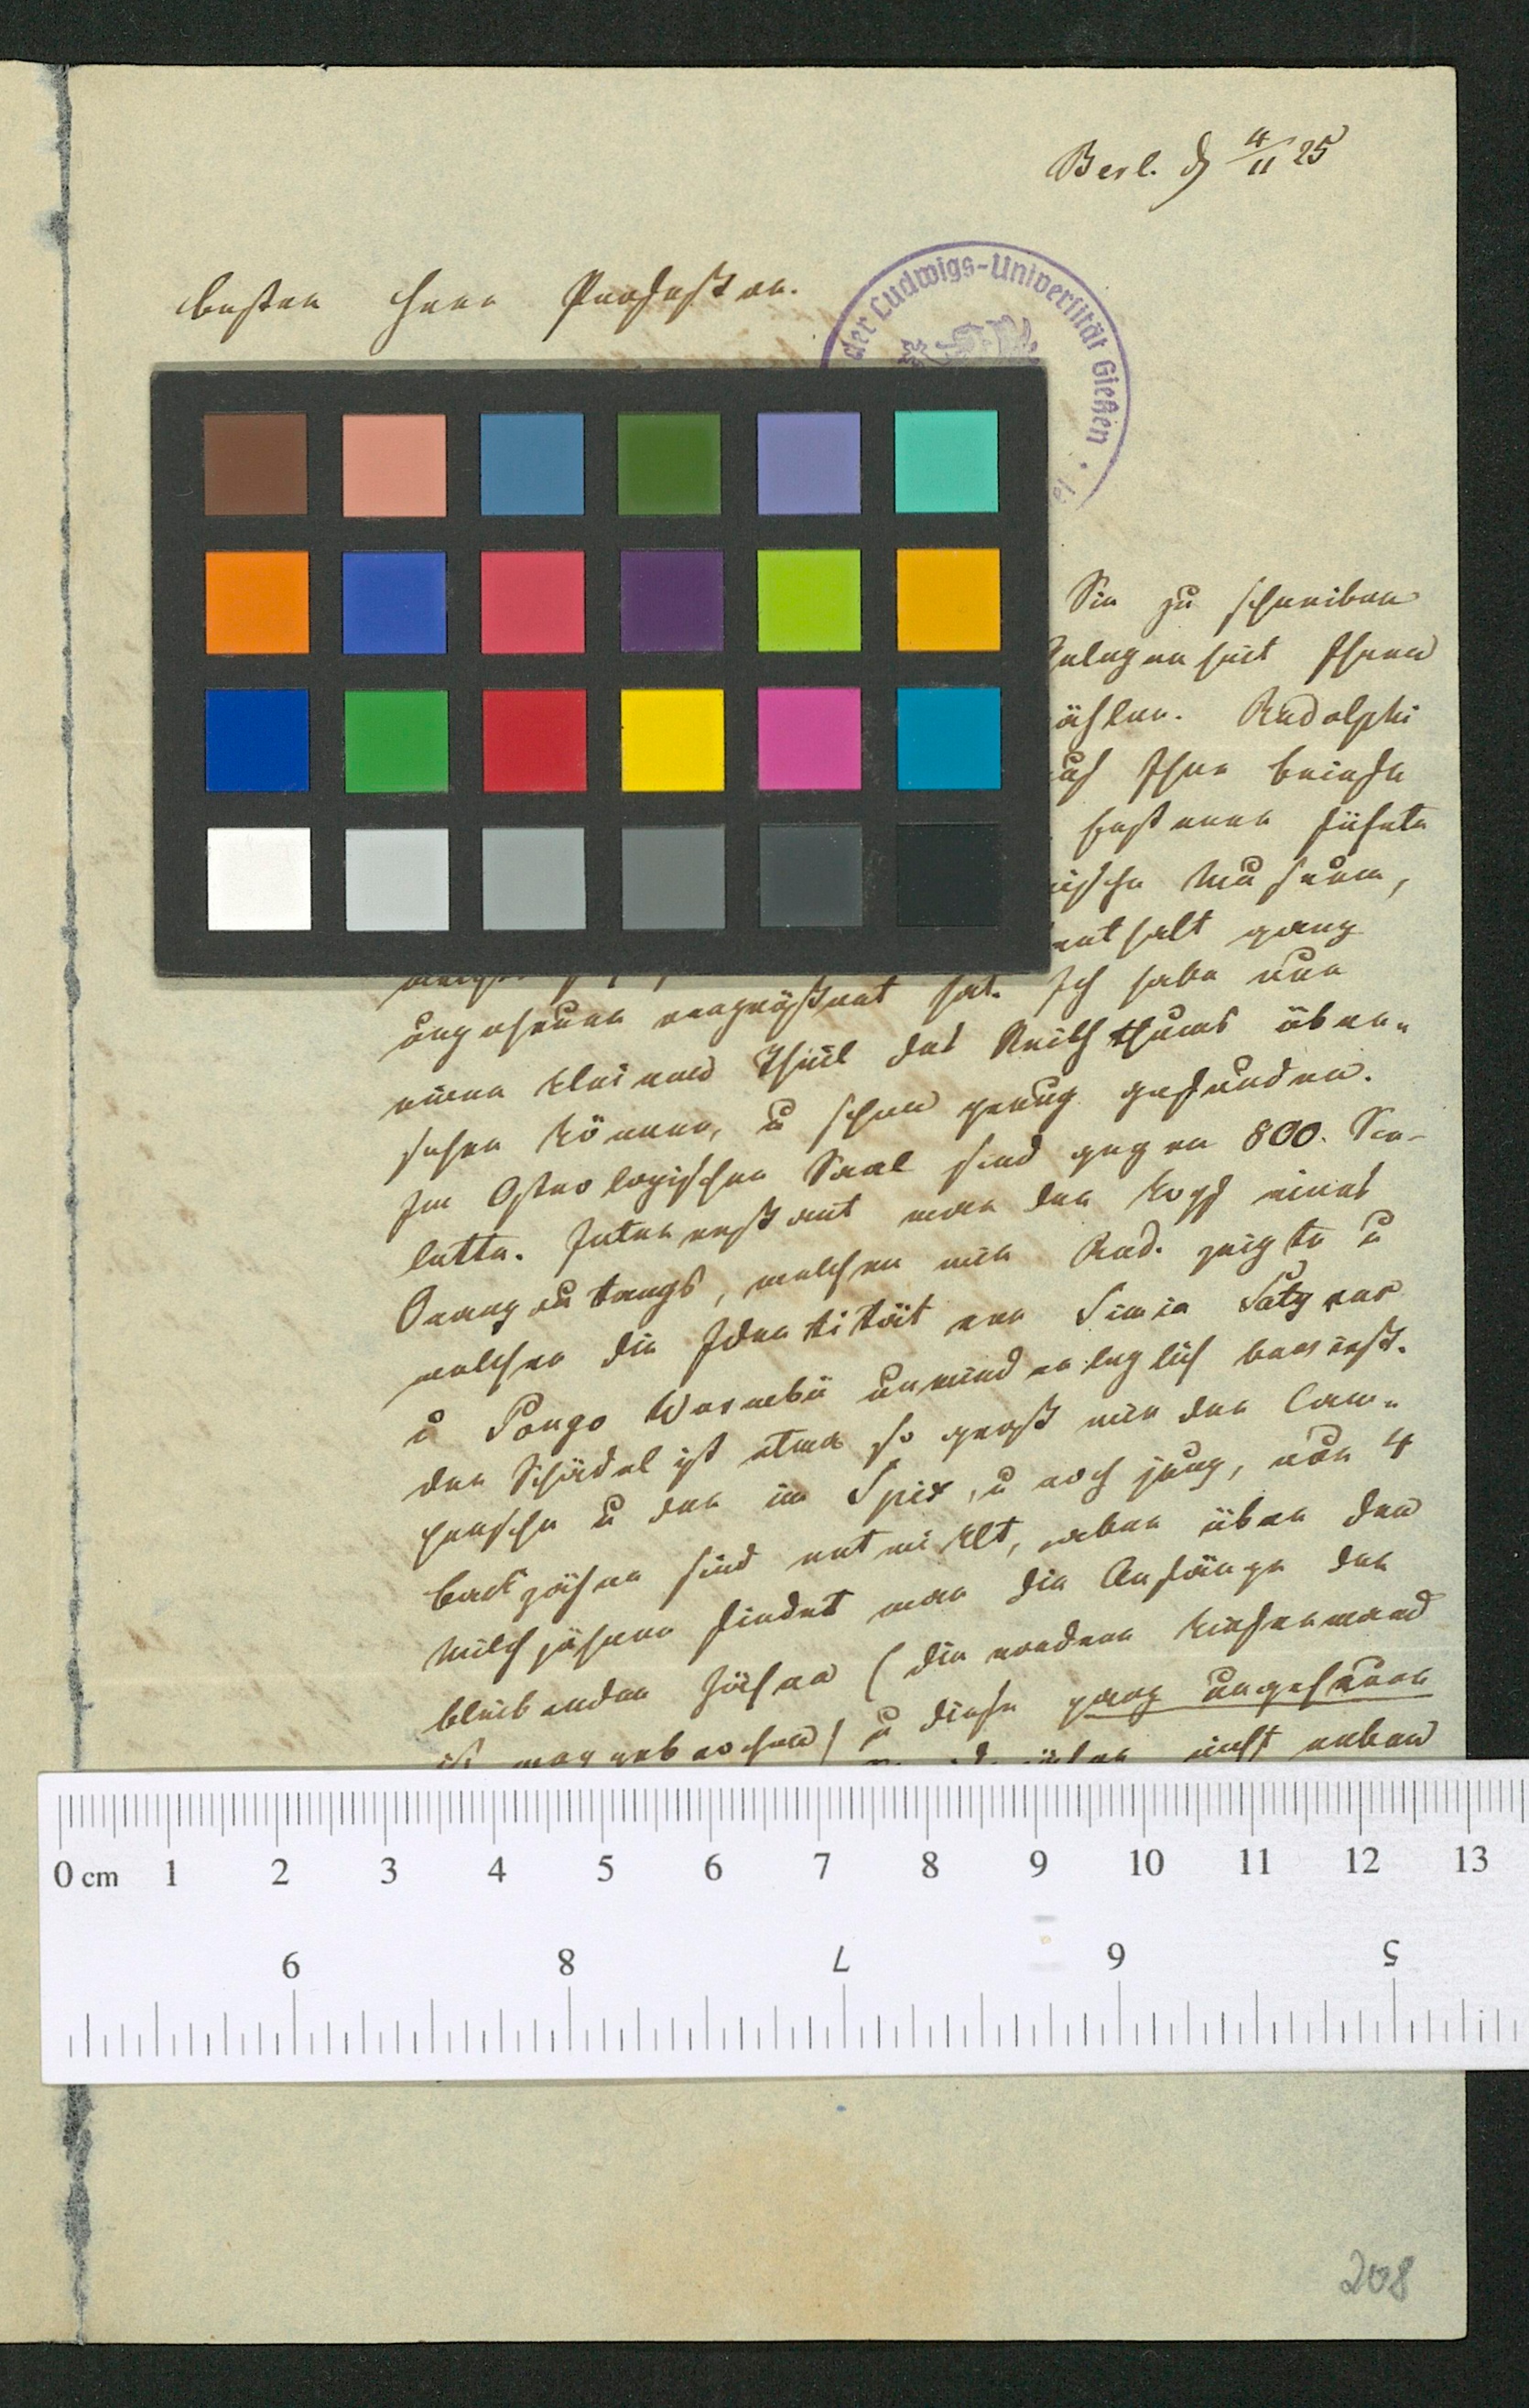 Berl. d 4/11 25
bester Herr Professor.
der Ludwigs-Universität Gießen
Sie zu schreiben
Gelegenheit Ihnen
ählen. Rudolphi
auch Ihre Briefe
besterer führte
ische Museum,
enthalt ganz
ungeheuer vergrößert hat. Ich habe nur
einen kleinen Theil des Reichthums über-
sehen können, u schon genug gefunden.
Im Osteologischen Saal sind gegen 800. Ske-
lette. Interessant war der Kopf eines
Orangutangs, welchen mir Rud. zeigte u
welcher die Identität von Simia Satyrus
u Pongo Wurmbii unwiderleglich beweist.
der Schädel ist etwa so groß wie der Cam-
persche u der im Spix, u noch jung, nur 4
Backzähne sind entwickelt, aber über den
Milchzähnen findet man die Anfänge der
bleibenden Zähne (die vordere Kieferwand
ist weggebrochen) u diese ganz ungeheuer
nicht neben
0 cm 1 2 3 4 5 6 7 8 9 10 11 12 13
9 8 7 6 5
208